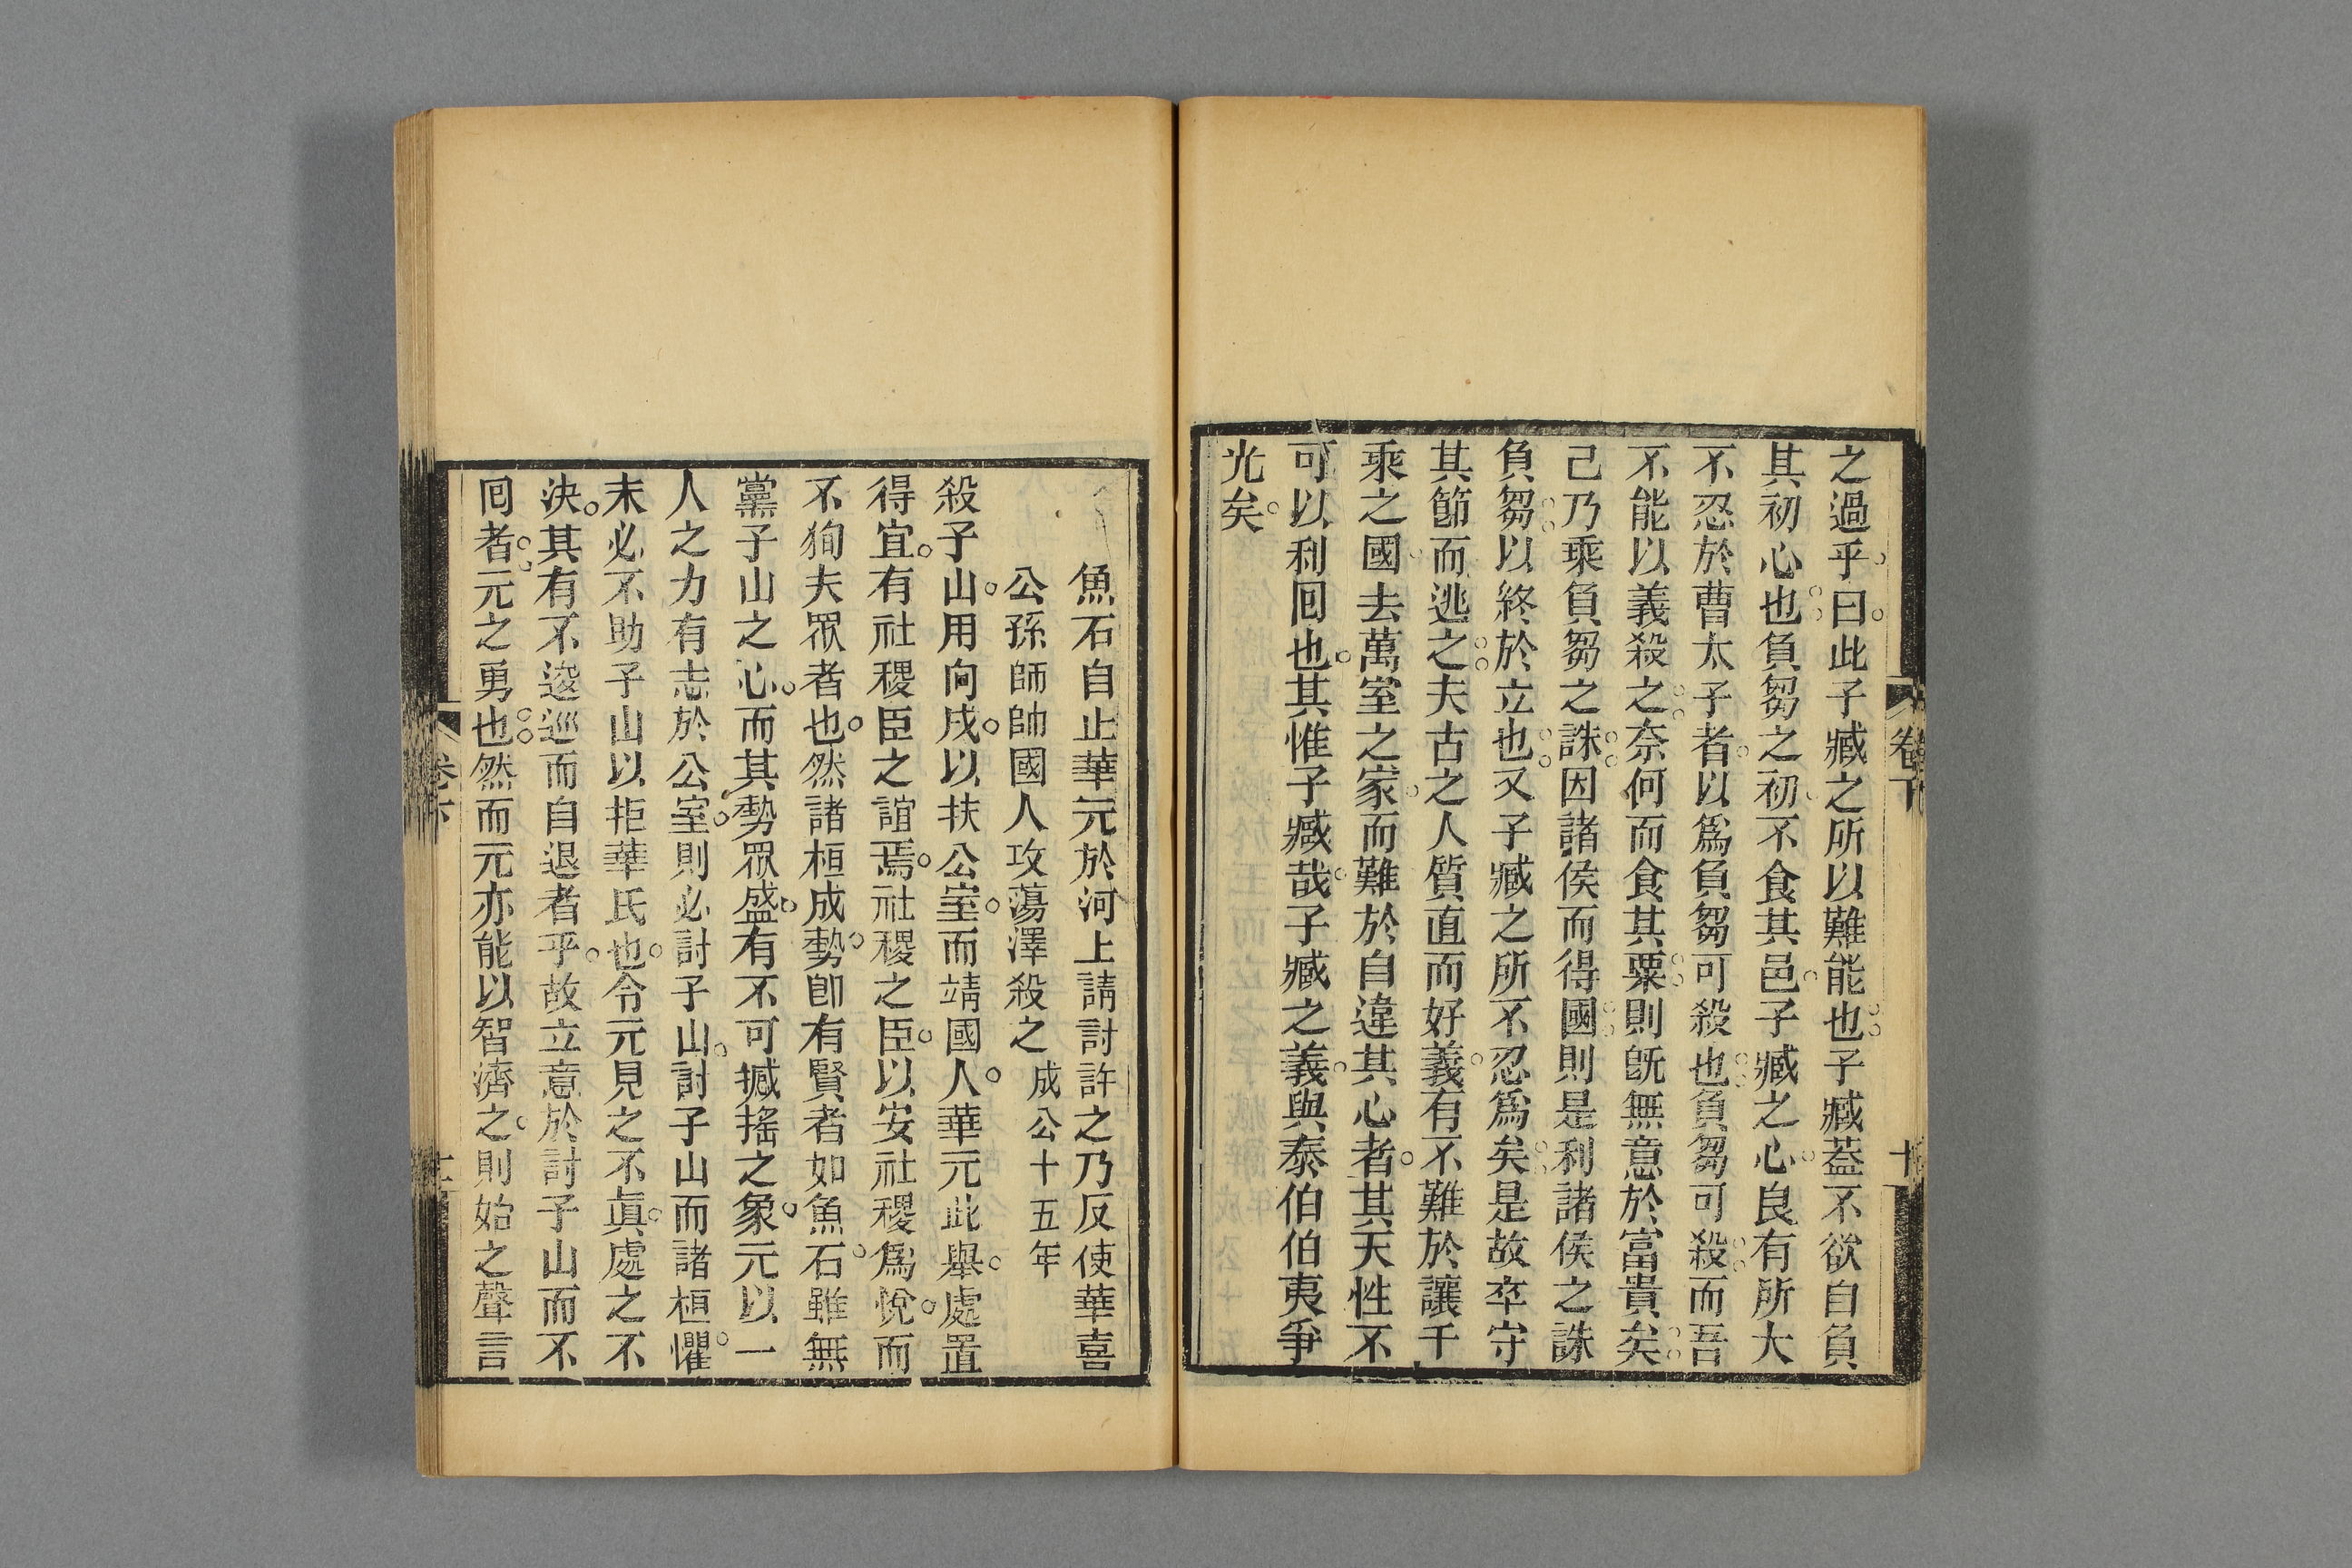 之過乎曰此子臧之所以難能也子臧蓋不欲自負
其初心也負芻之初不食其邑子臧之心良有所大
不忍於曹太子者以爲負芻可殺也負芻可殺而吾
不能以義殺之奈何而食其粟則旣無意於富貴矣
己乃乘負芻之誅因諸侯而得國則是利諸侯之誅
負芻以終於立也又子臧之所不忍爲矣是故卒守
其節而逃之夫古之人質直而好義有不難於讓千
乘之國去萬室之家而難於自違其心者其天性不
可以利囘也其惟子臧哉子臧之義與泰伯伯夷爭
光矣
卷下
十
魚石自止華元於河上請討許之乃反使華喜
公孫師帥國人攻蕩澤殺之成公十五年
殺子山用向戌以扶公室而靖國人華元此舉處置
得宜有社稷臣之誼焉社稷之臣以安社稷爲悅而
不狥夫眾者也然諸桓成勢卽有賢者如魚石雖無
黨子山之心而其勢眾盛有不可撼搖之象元以一
人之力有志於公室則必討子山討子山而諸桓懼
末必不助子山以拒華氏也令元見之不眞處之不
決其有不逡巡而自退者乎故立意於討子山而不
囘者元之勇也然而元亦能以智濟之則始之聲言
卷下